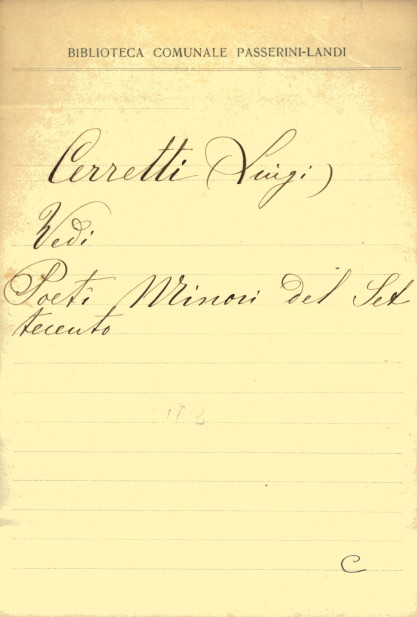 BIBLIOTECA COMUNALE PASSERINI-LANDI
Cerretti (Luigi)
Vedi
Poeti Minori del Set
tecento
C